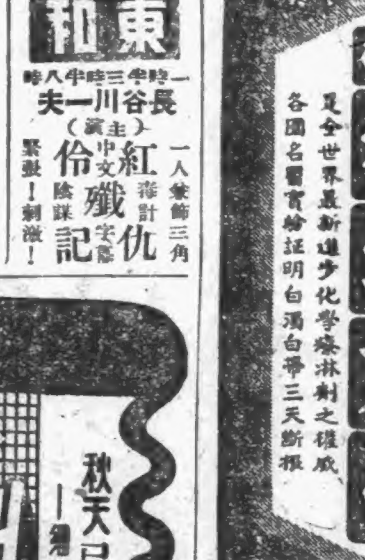 東和
一時半三時半八時
長谷川一夫
（主演）
一人兼飾三角
紅伶殲仇記
毒計
中文字幕
陰謀
緊張！刺激！
是全世界最新進步化學療淋劑之權威
各國名醫實驗証明白濁白帶三天斷根
秋天已